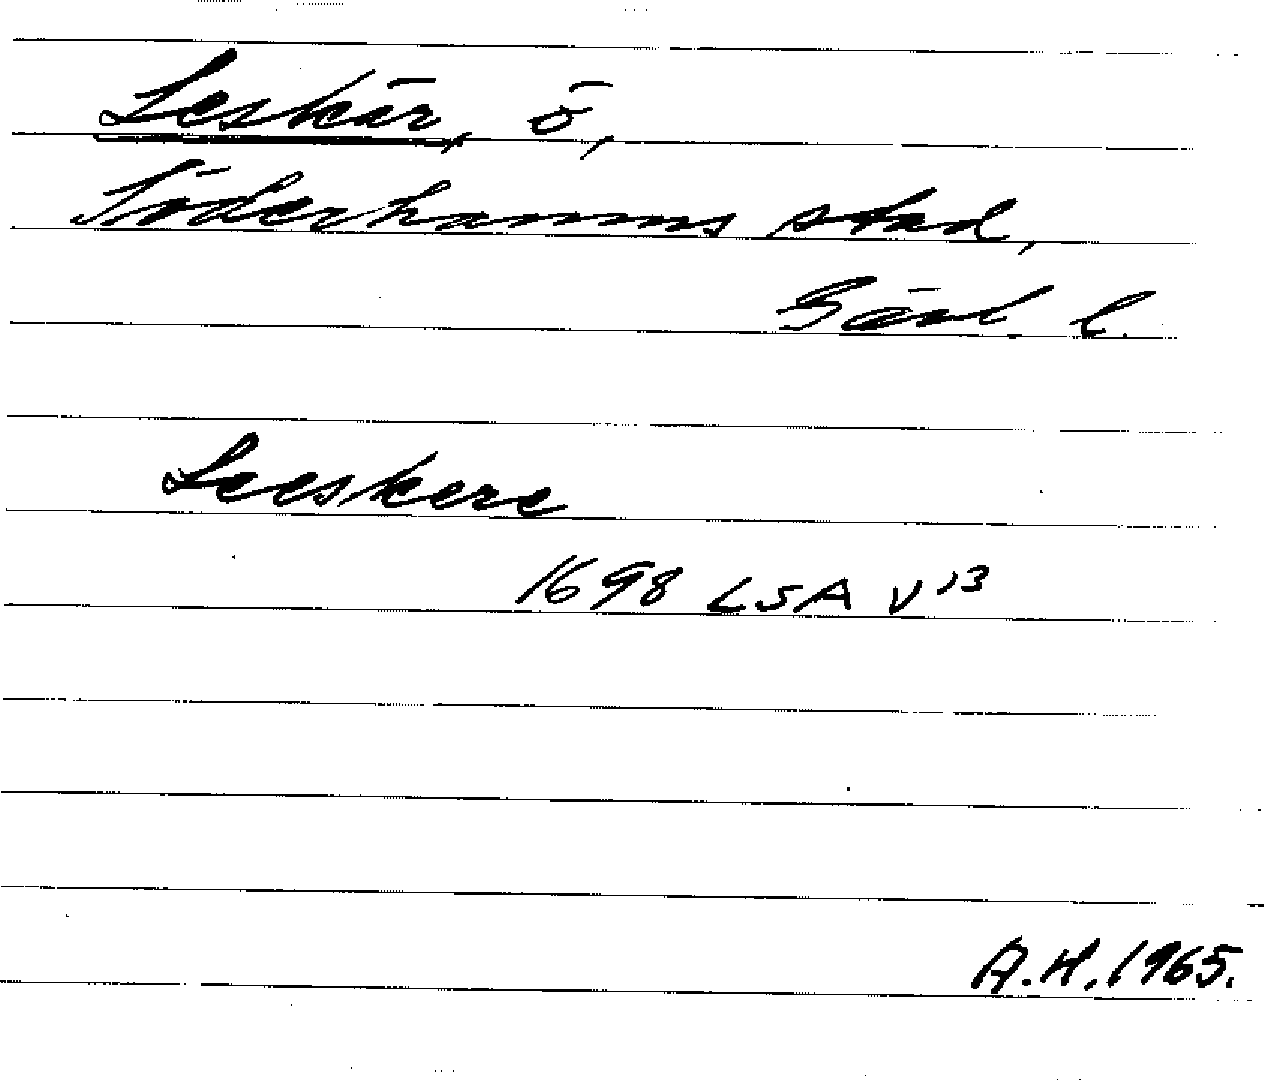 Leskär, ö,
Söderhamns stad,
Gävl. l.
Leeskere
1698 LSA V 13
A.H. 1965.